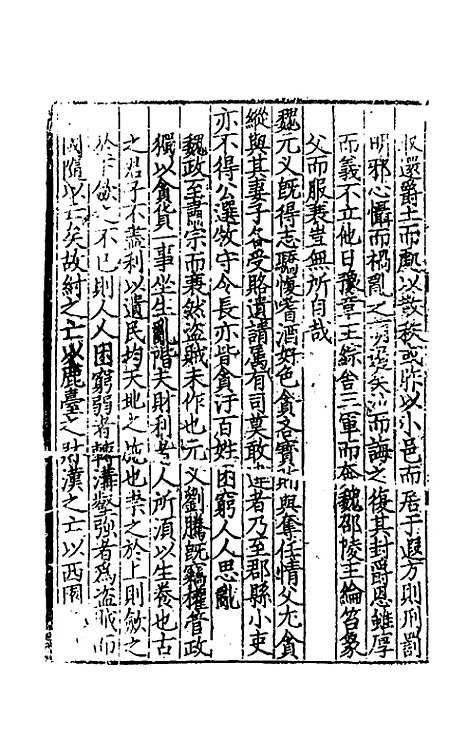 奴還爵土而亂以散務或胙以小邑而居于遐方則刑罰
明邪心懾而禍亂之萌遏矣泚而誨之復其封爵恩雖厚
而義不立他日豫章王綜舍三軍而奔魏邵陵王綸笞象
父而服衰豈無所自哉
魏元义既得志驕愎嗜酒好色貪吝寶賄與奪任情父尤貪
縱與其妻子各受賂遺請屬有司莫敢違者乃至郡縣小吏
亦不得公選牧守令長亦皆貪汙百姓困窮人人思亂
魏政至肅宗而衰然盜賊未作也元义劉騰既竊權普政
獨以貪貨一事坐生亂階夫財利者人所須以生養也古
之君子不盡利以遺民均天地之施也禁之於上則斂之
於下斂之不已則人人困窮弱者轉溝壑強者為盜賊而
國隨以亡矣故紂之亡以鹿臺之財漢之亡以西園